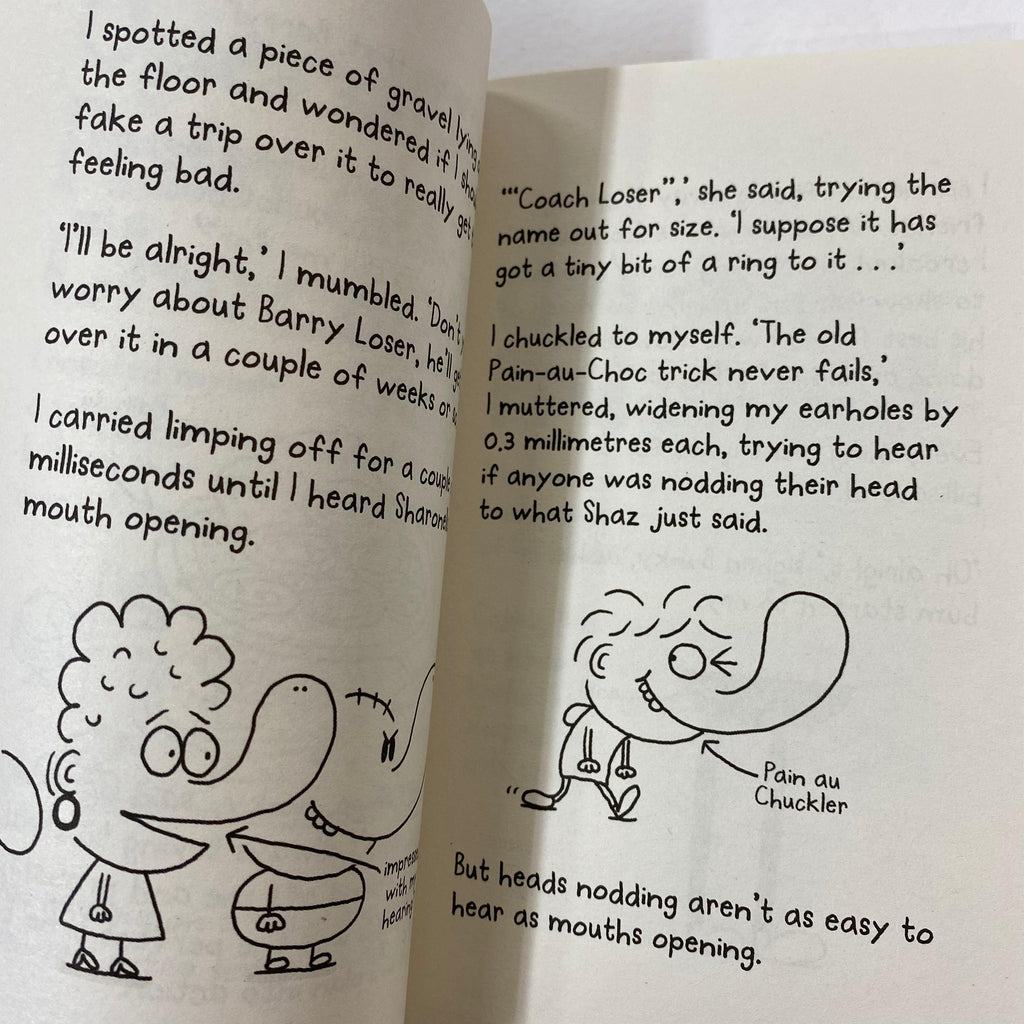 I spotted a piece of gravel lying
the floor and wondered if I
fake a trip over it to really get
feeling bad.
‘I’ll be alright,’ I mumbled. ‘Don’t
worry about Barry Loser, he’ll
over it in a couple of weeks or
I carried limping off for a
milliseconds until I heard
mouth opening.
with
‘“Coach Loser”,’ she said, trying the
name out for size. ‘I suppose it has
got a tiny bit of a ring to it . . .’
I chuckled to myself. ‘The old
Pain-au-Choc trick never fails,’
I muttered, widening my earholes by
0.3 millimetres each, trying to hear
if anyone was nodding their head
to what Shaz just said.
Pain au
Chuckler
But heads nodding aren’t as easy to
hear as mouths opening.